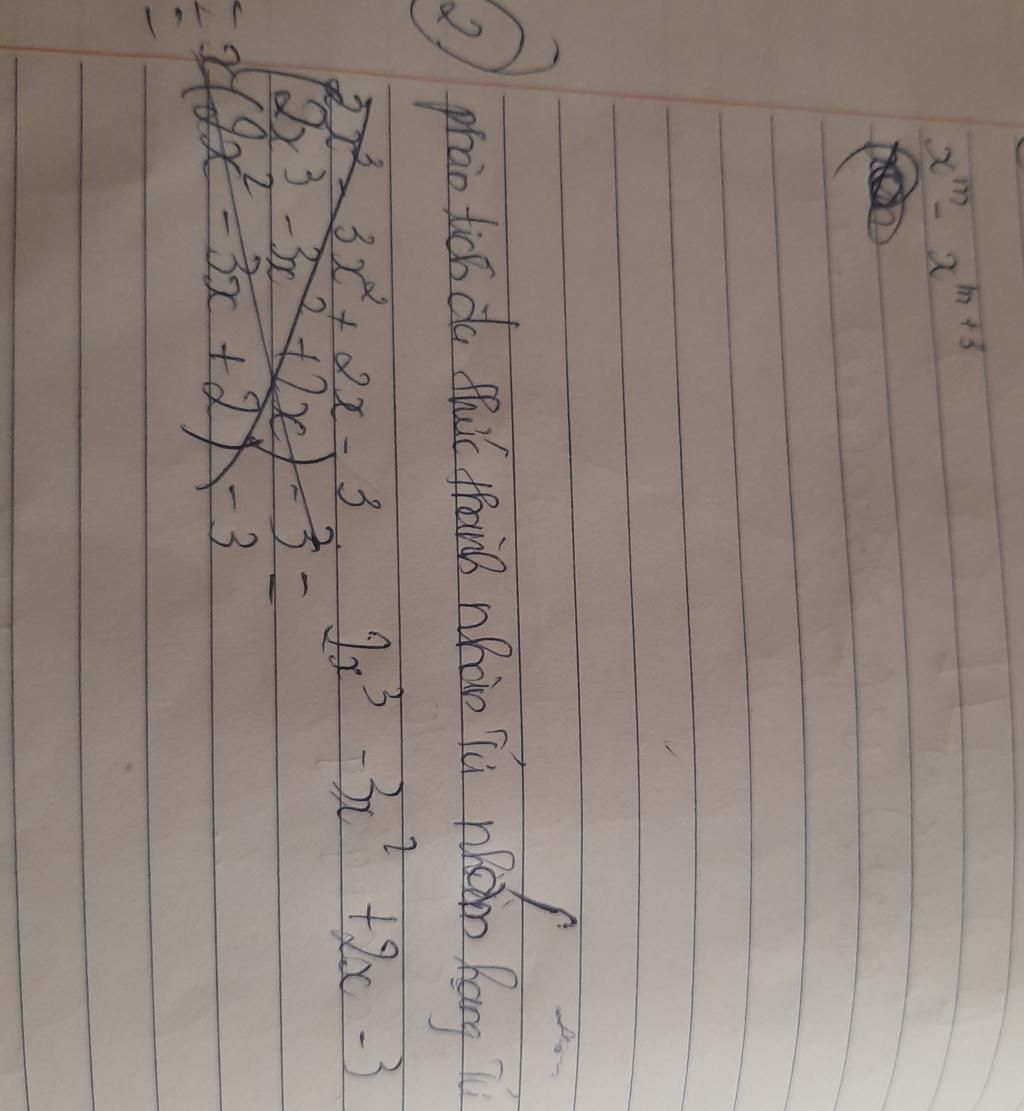 x^m - x^{m+3}
2
phân tích đa thức thành nhân tử nhóm hạng tử
2x³ - 3x² + 2x - 3
2x³ - 3x² + 2x - 3
(2x³ - 3x² + 2x) - 3 =
= x(2x² - 3x + 2) - 3